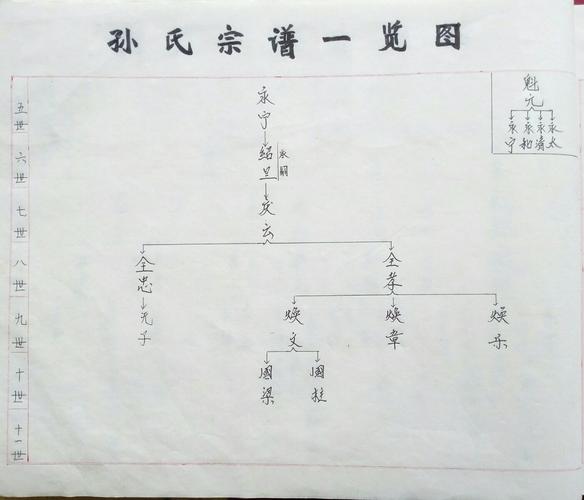 孙氏宗谱一览图
魁元
永宁 永和 永清 永太
五世 永宁
六世 绍旦 永嗣
七世 庆云
八世 全忠 全孝
九世 无子 焕文 焕章 焕乐
十世 國梁 國柱
十一世